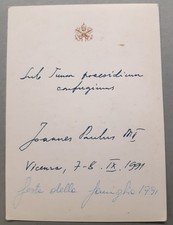 Sub Tuum praesidium
confugimus
Joannes Paulus PP. II
Vicenza, 7-8. IX. 1991
festa della famiglia 1991